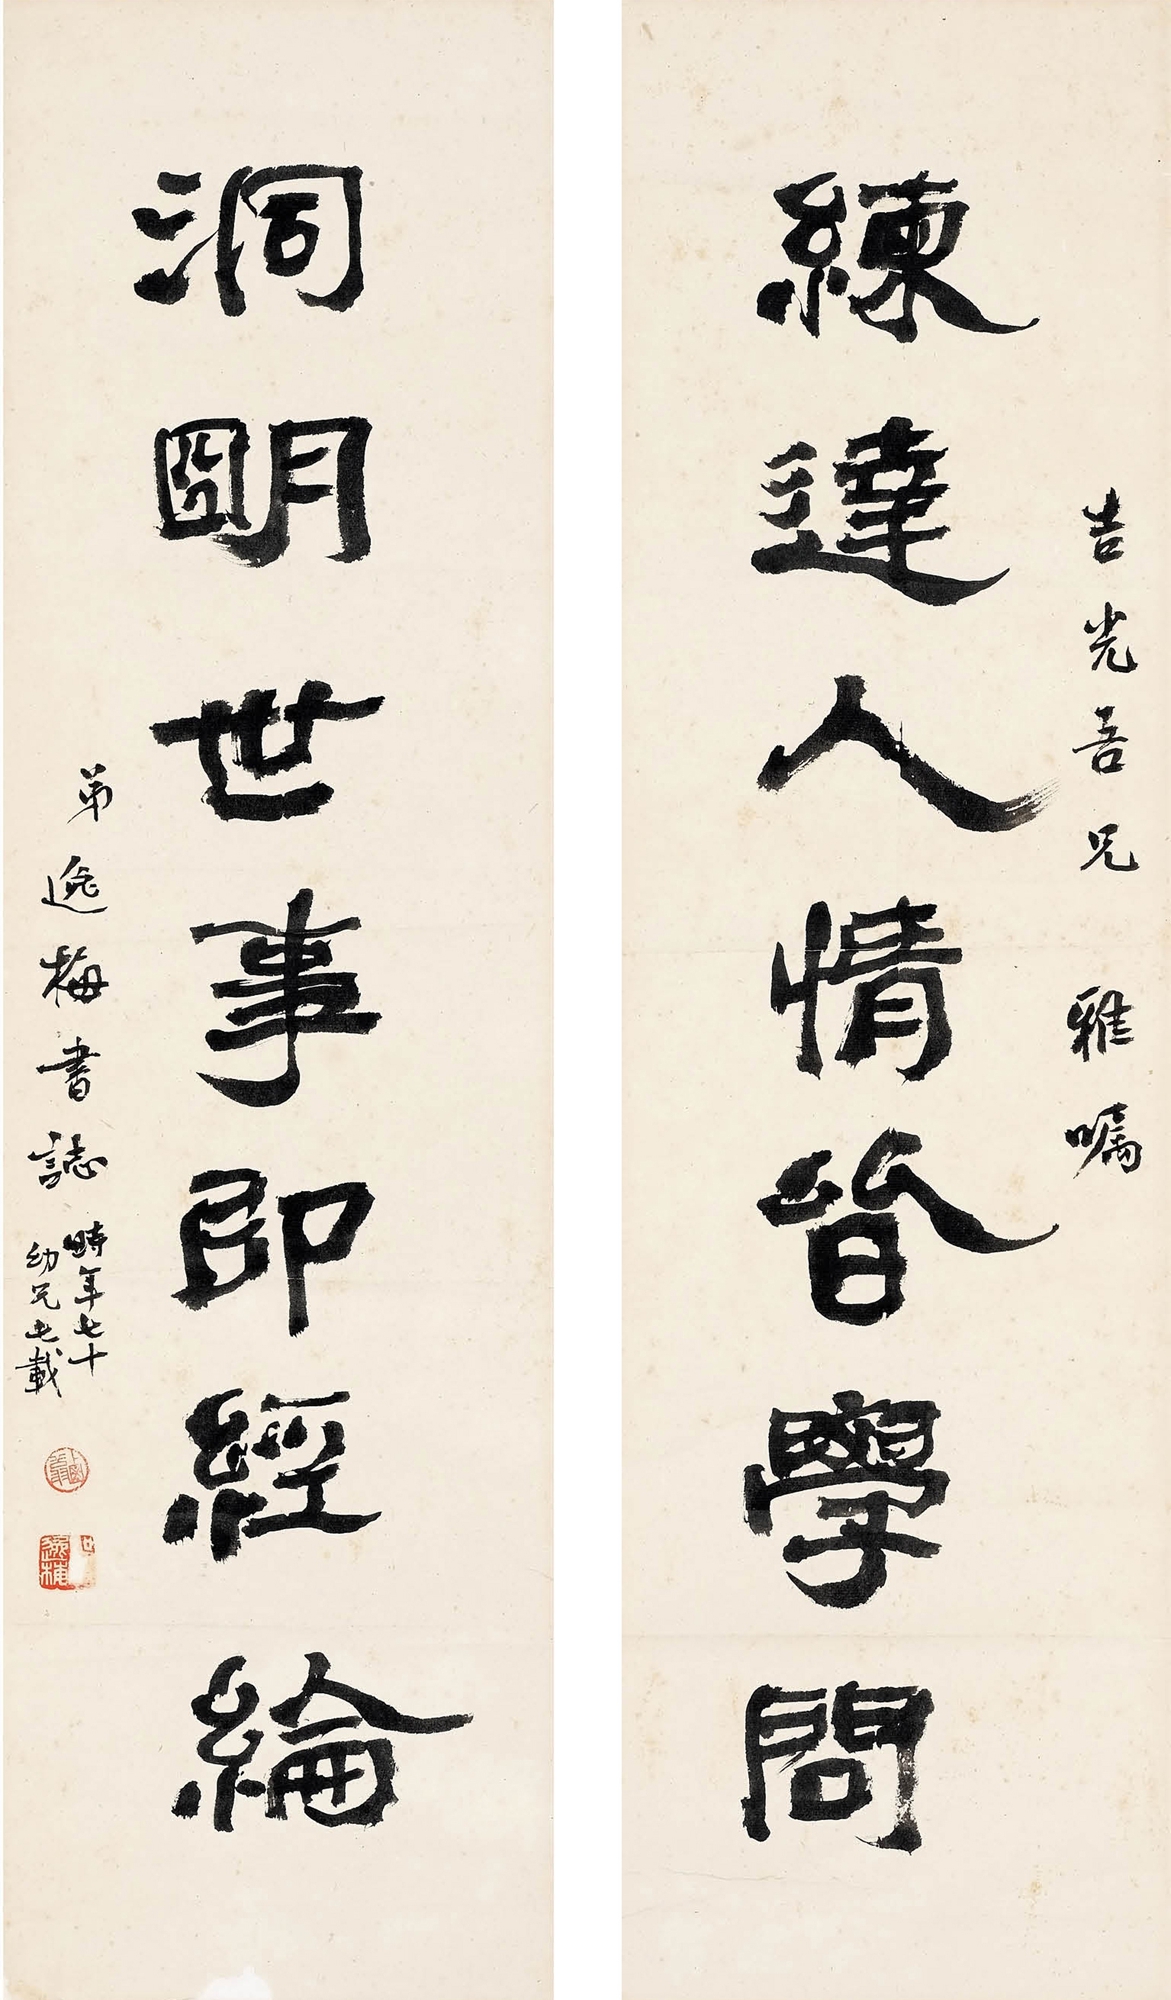 吉光吾兄 雅嘱
練達人情皆學問
洞明世事即經綸
弟逸梅書誌
時年七十
幼兄七載
逸梅